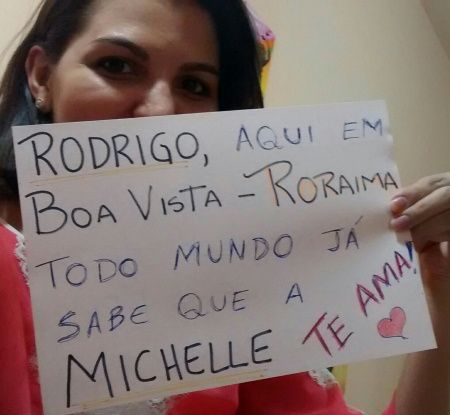 RODRIGO, AQUI EM
BOA VISTA - RORAIMA
TODO MUNDO JÁ
SABE QUE A
MICHELLE TE AMA!